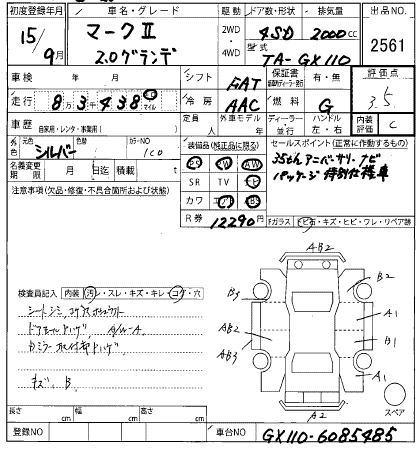 初度登録年月 車名・グレード 駆動 ドア数・形状 排気量 出品NO
15年 9月 マークⅡ 2.0グランデ 2WD・4WD 4SD 2000cc 2561
型式 TA-GX110
車検 年 月 シフト FAT 保証書 有・無 評価点 3.5
走行 8万3千438 km マイル 冷房 AAC 燃料 G
車歴 自家用・レンタ・事業用( ) 定員 人 外車モデル ディーラー・並行 ハンドル 左・右 内装評価 C
外色 元色 シルバー 色替 カラーNO 1C0
装備品(純正品に限る) セールスポイント(正常に作動するもの)
名義変更期限 月 日迄 積載 t
PS PW AW
SR TV ナビ
カワ エアB ABS
35thアニバーサリーナビ
パッケージ 特別仕様車
注意事項(欠品・修復・不具合箇所および状態)
R券 12290円
Fガラス 飛石・キズ・ヒビ・ワレ・リペア跡
検査員記入 内装 汚レ・スレ・キズ・キレ・コゲ・穴
シートシミ
ドアモールハゲ A/W-A
キズ B
AB2
B2
B3
A1
AB2
B1
AB3
A1
A2
スペア
長さ cm 幅 cm 高さ cm
登録NO 車台NO GX110-6085485